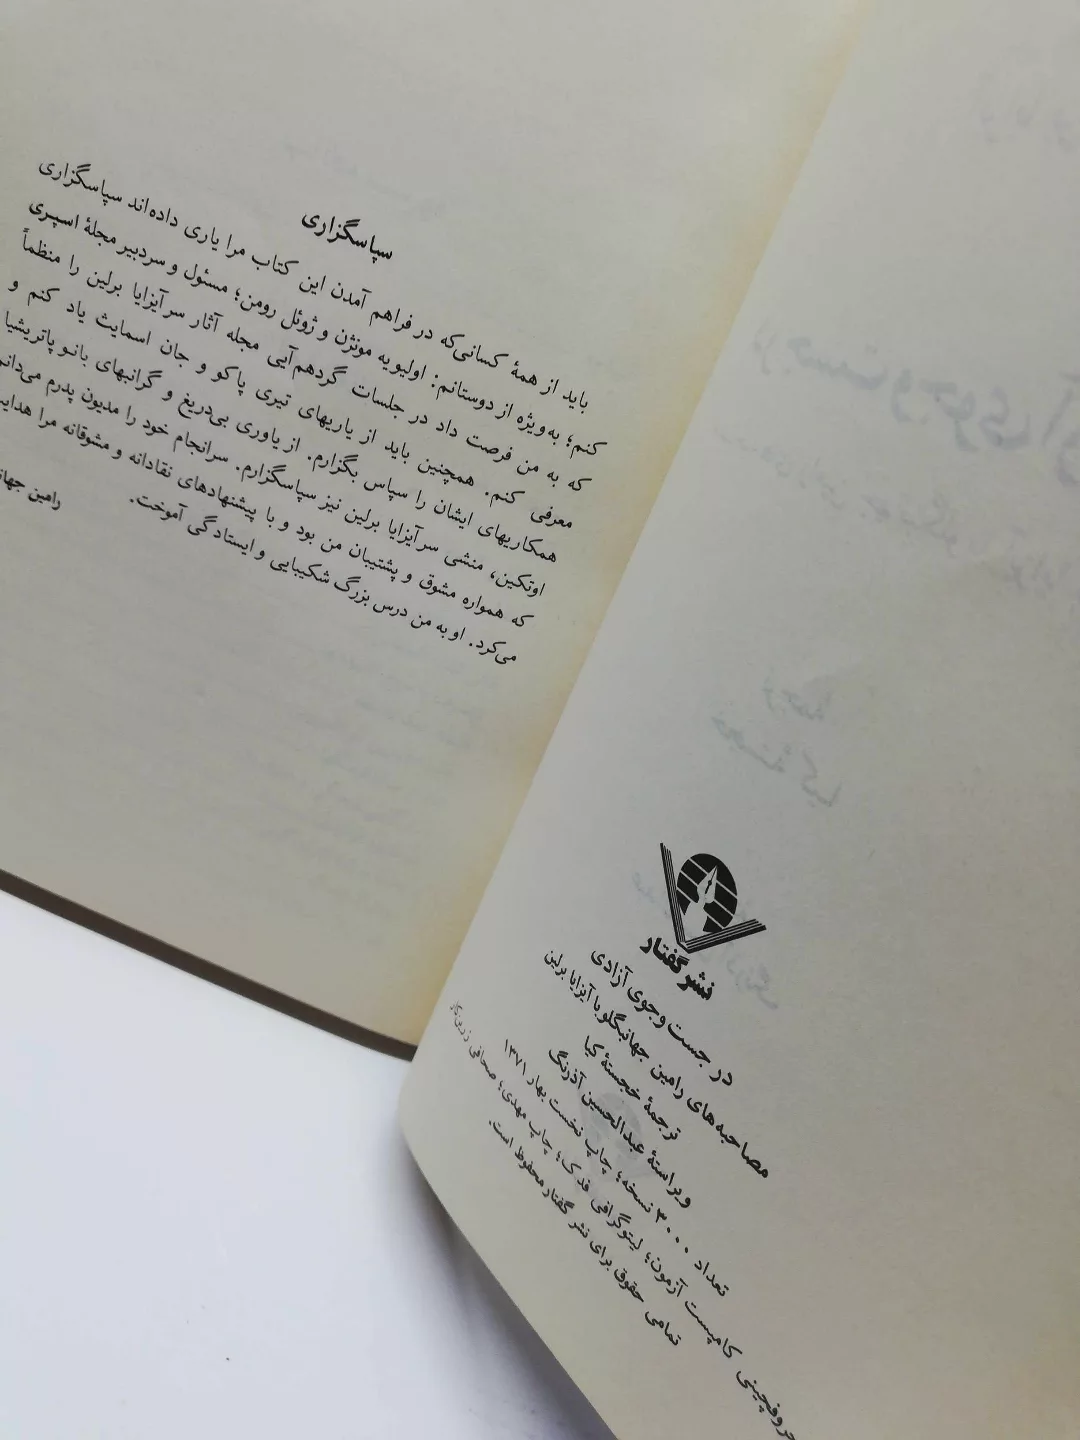 نشر گفتار
در جست و جوی آزادی
مصاحبه‌های رامین جهانبگلو با آیزایا برلین
ترجمهٔ خجستهٔ کیا
ویراستهٔ عبدالحسین آذرنگ
تعداد ۳۰۰۰ نسخه؛ چاپ نخست بهار ۱۳۷۱
حروفچینی کامپست آزمون؛ لیتوگرافی فدک؛ چاپ مهدی؛ صحافی
تمامی حقوق برای نشر گفتار محفوظ است.
سپاسگزاری
باید از همهٔ کسانی که در فراهم آمدن این کتاب مرا یاری داده‌اند سپاسگزاری
کنم؛ به‌ویژه از دوستانم: اولیویه مونژن و ژوئل رومن؛ مسئول و سردبیر مجلهٔ اسپری
که به من فرصت داد در جلسات گردهم‌آیی مجله آثار سر آیزایا برلین را منظماً
معرفی کنم. همچنین باید از یاریهای تیری پاکو و جان اسمایث یاد کنم و
همکاریهای ایشان را سپاس بگزارم. از یاوری بی‌دریغ و گرانبهای بانو پاتریشیا
اوتکین، منشی سر آیزایا برلین نیز سپاسگزارم. سرانجام خود را مدیون پدرم می‌دانم
که همواره مشوق و پشتیبان من بود و با پیشنهادهای نقادانه و مشوقانه مرا
می‌کرد. او به من درس بزرگ شکیبایی و ایستادگی آموخت.
رامین